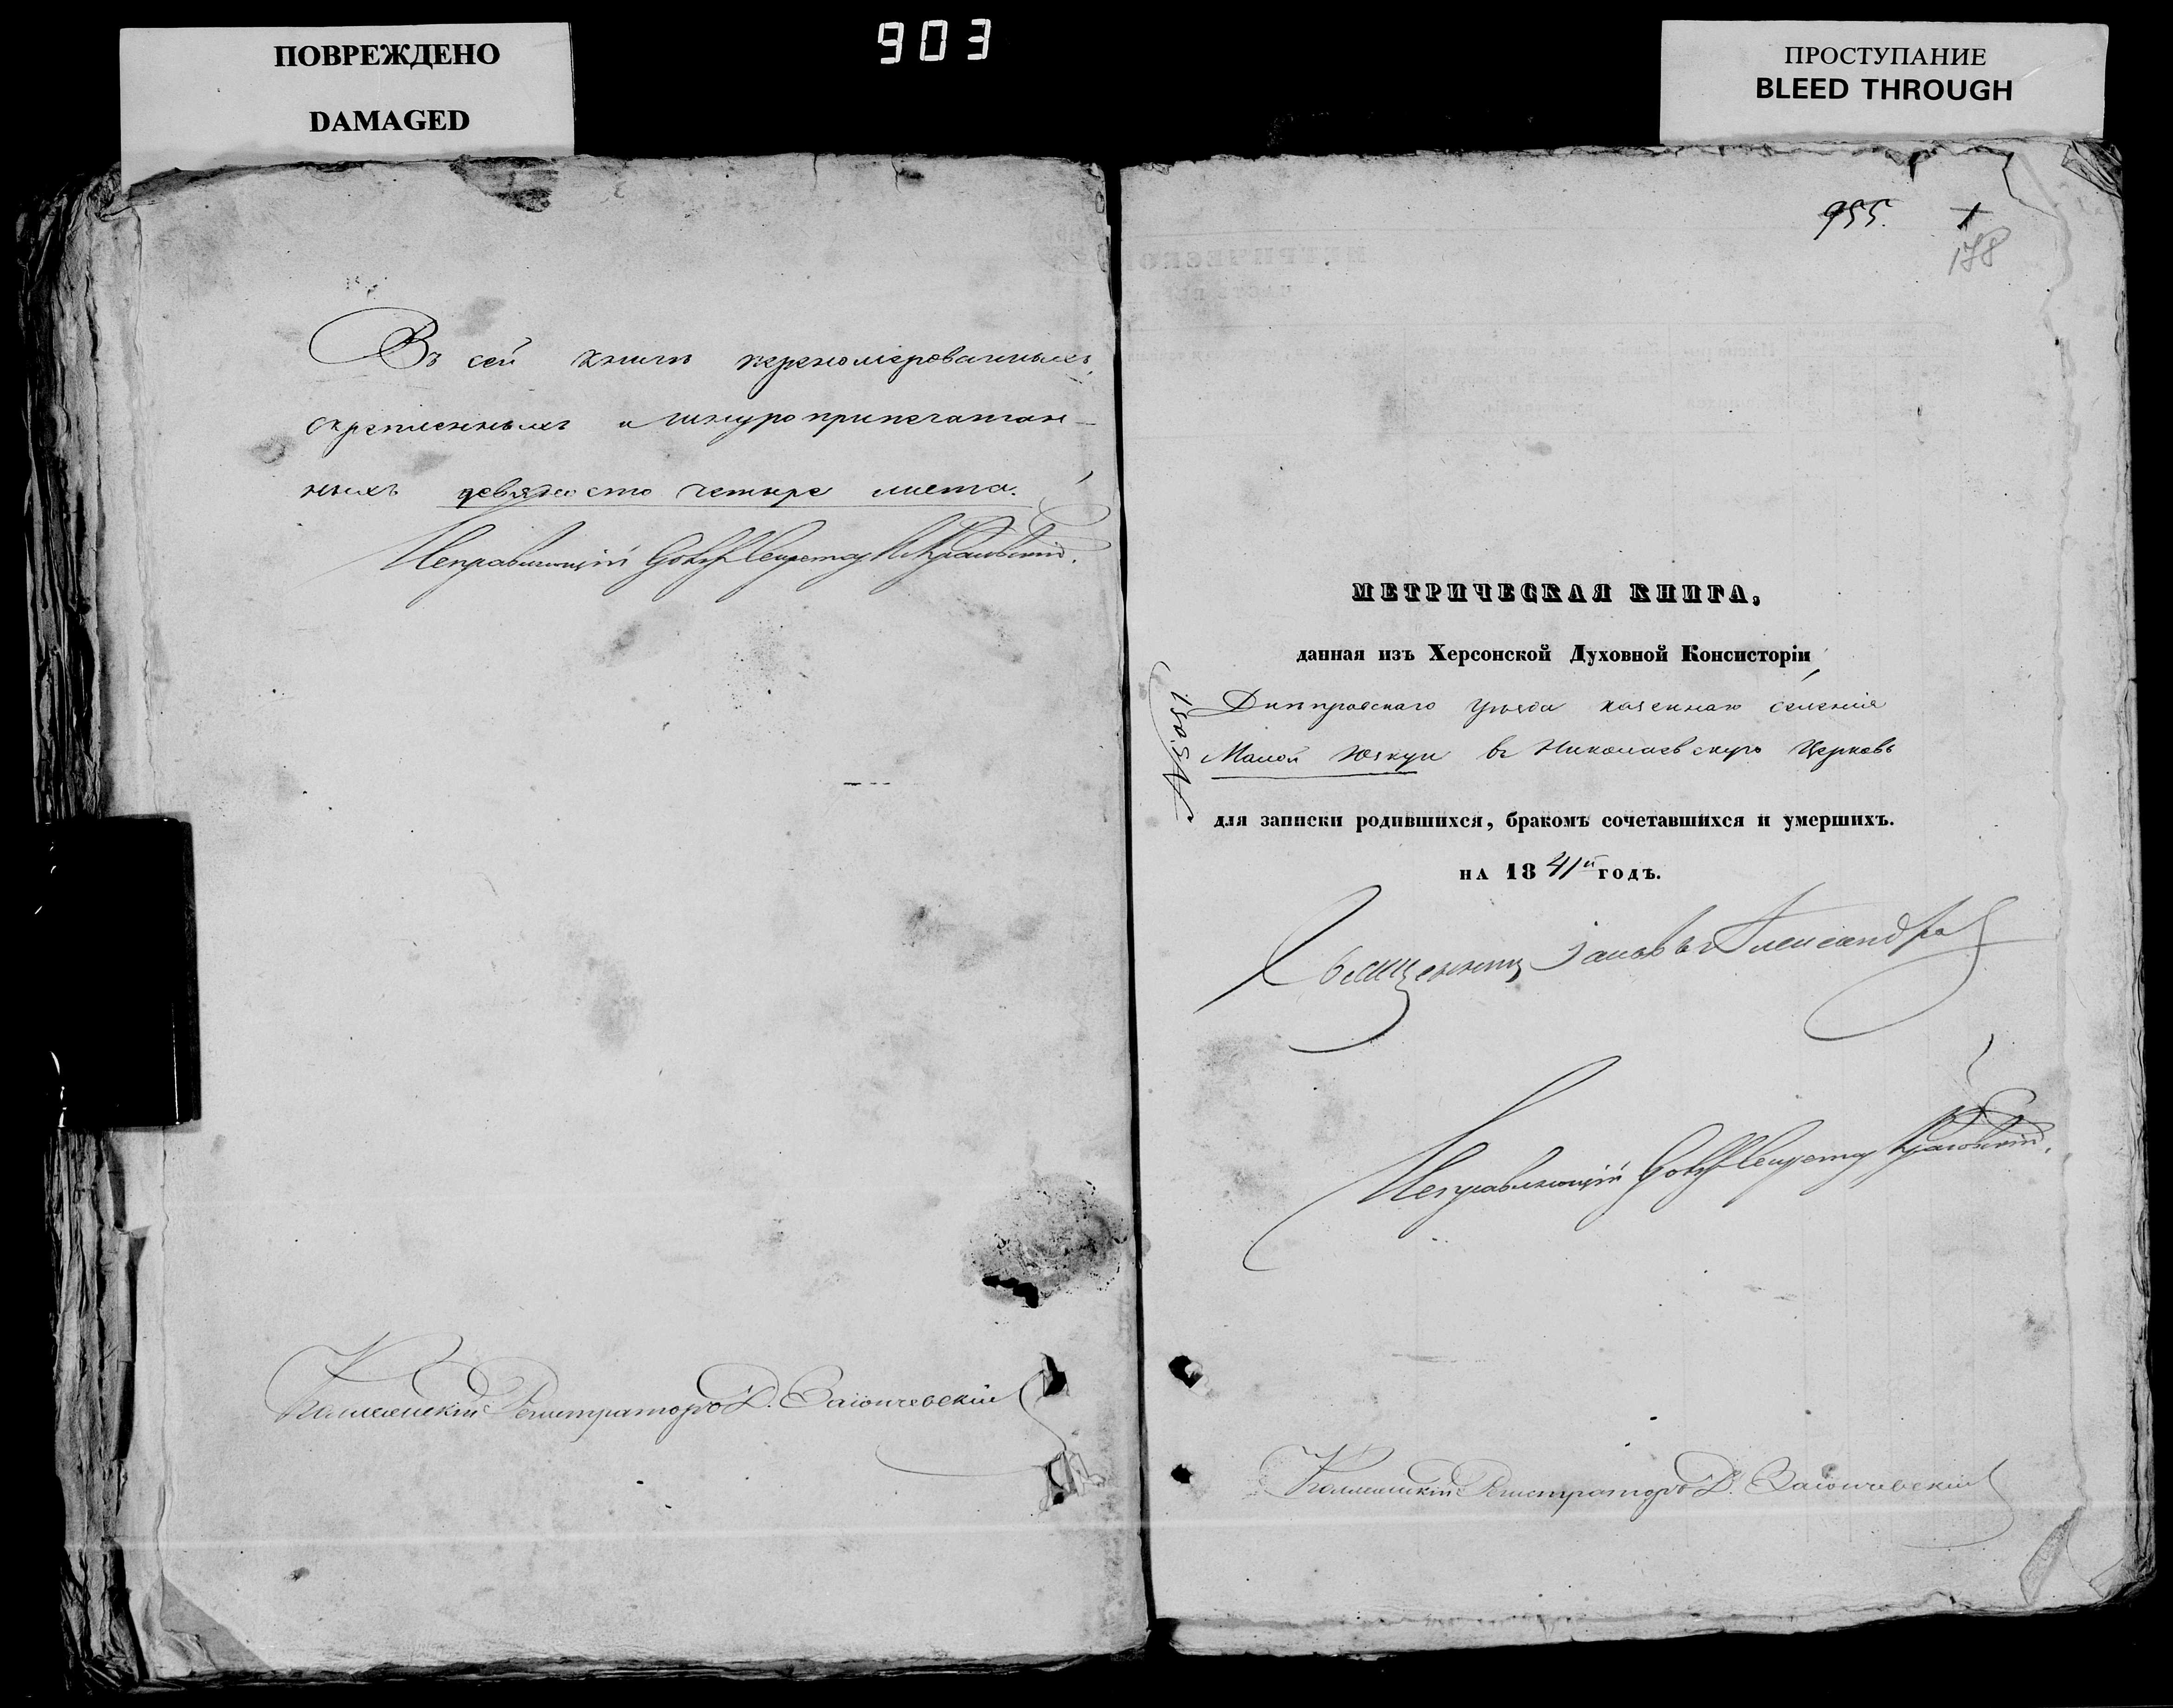 ПОВРЕЖДЕНО
DAMAGED
903
ПРОСТУПАНИЕ
BLEED THROUGH
Въ сей книгѣ перенумерованныхъ,
скрепленныхъ и шнуроприпечатан-
ныхъ девяносто четыре листа.
Исправляющій Секретаря
Коллежскій Регистраторъ Д. Заіончевскій
955. 1
178
МЕТРИЧЕСКАЯ КНИГА,
данная изъ Херсонской Духовной Консисторіи
Днѣпровскаго уѣзда казеннаго селенія
Малой Юзкуи въ Николаевскую Церковь
для записки родившихся, бракомъ сочетавшихся и умершихъ.
НА 1841й ГОДЪ.
Священникъ Іаковъ Александров
Исправляющій Секретаря
Коллежскій Регистраторъ Д. Заіончевскій